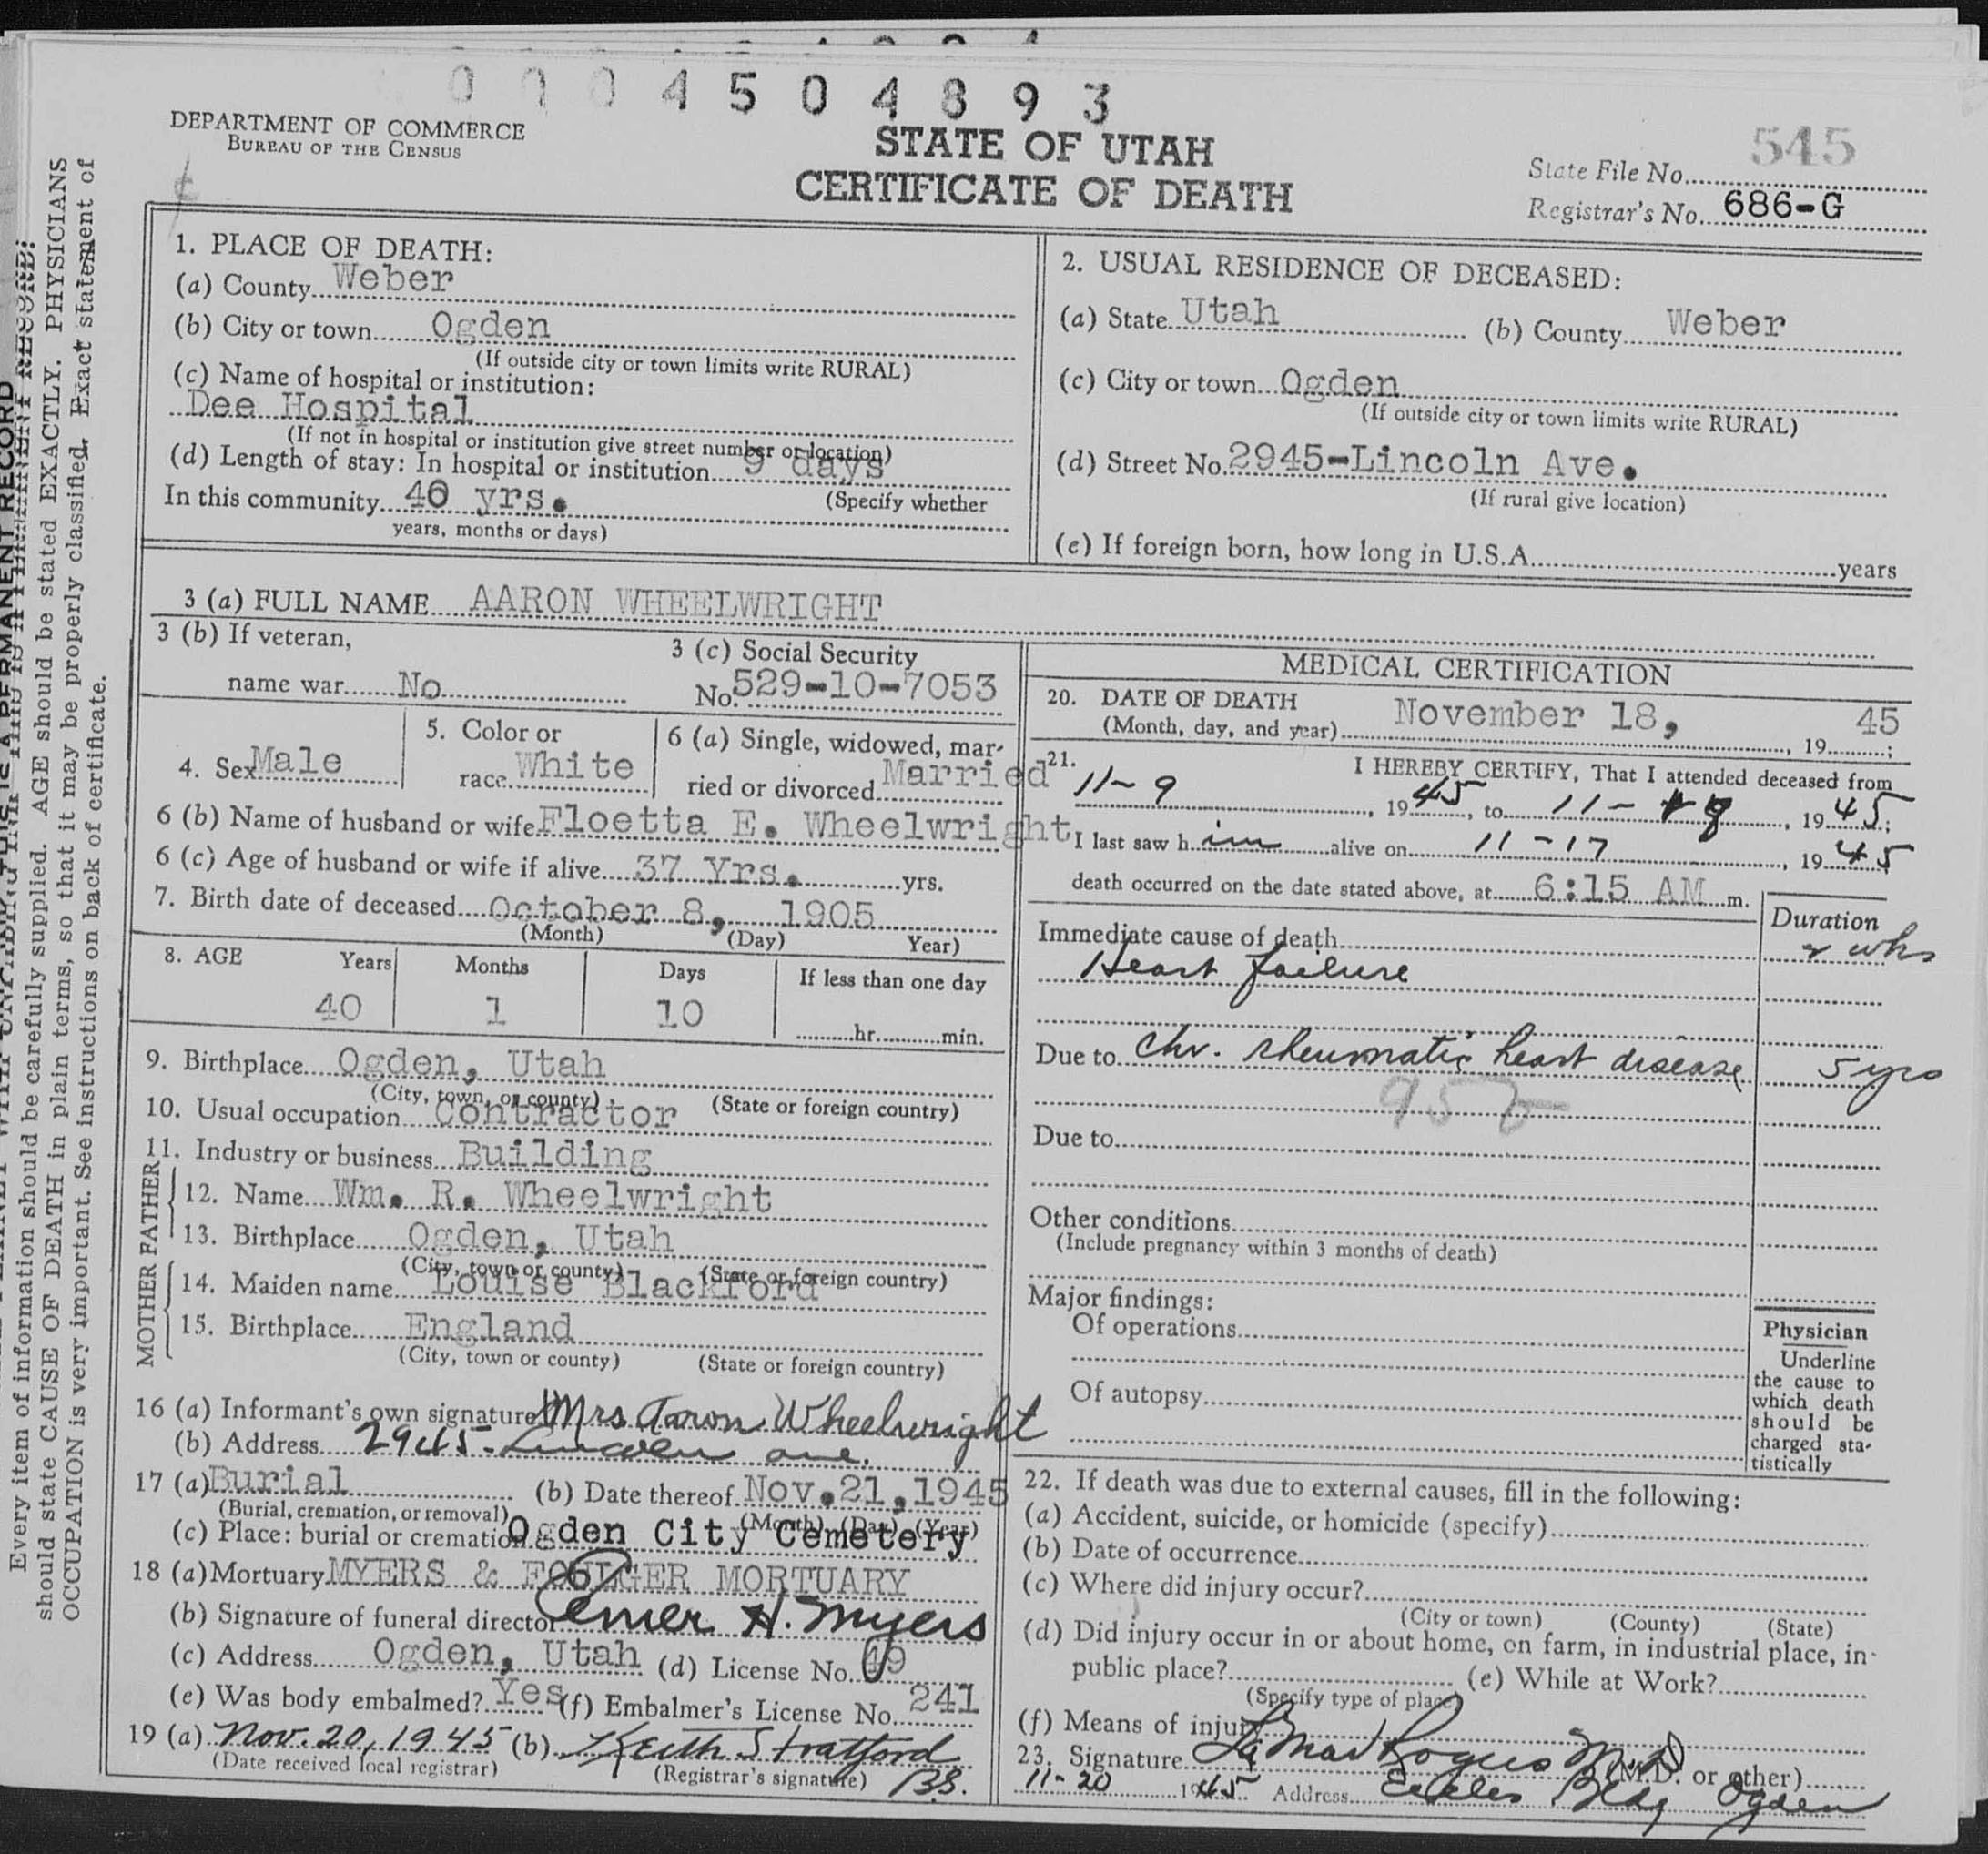 0004504893
DEPARTMENT OF COMMERCE
BUREAU OF THE CENSUS
STATE OF UTAH
CERTIFICATE OF DEATH
State File No. 545
Registrar's No. 686-G
Every item of information should be carefully supplied. AGE should be stated EXACTLY. PHYSICIANS
should state CAUSE OF DEATH in plain terms, so that it may be properly classified. Exact statement of
OCCUPATION is very important. See instructions on back of certificate.
1. PLACE OF DEATH:
(a) County Weber
(b) City or town Ogden
(If outside city or town limits write RURAL)
(c) Name of hospital or institution:
Dee Hospital
(If not in hospital or institution give street number or location)
(d) Length of stay: In hospital or institution 9 days
In this community 40 yrs. (Specify whether
years, months or days)
2. USUAL RESIDENCE OF DECEASED:
(a) State Utah (b) County Weber
(c) City or town Ogden
(If outside city or town limits write RURAL)
(d) Street No. 2945-Lincoln Ave.
(If rural give location)
(e) If foreign born, how long in U.S.A. years
3 (a) FULL NAME AARON WHEELWRIGHT
3 (b) If veteran,
name war No
3 (c) Social Security
No. 529-10-7053
4. Sex Male
5. Color or
race White
6 (a) Single, widowed, mar-
ried or divorced Married
6 (b) Name of husband or wife Floetta E. Wheelwright
6 (c) Age of husband or wife if alive 37 Yrs. yrs.
7. Birth date of deceased October 8, 1905
(Month) (Day) Year)
8. AGE Years Months Days If less than one day
40 1 10 hr. min.
9. Birthplace Ogden, Utah
(City, town, or county) (State or foreign country)
10. Usual occupation Contractor
11. Industry or business Building
FATHER
12. Name Wm. R. Wheelwright
13. Birthplace Ogden, Utah
(City, town or county) (State or foreign country)
MOTHER
14. Maiden name Louise Blackford
15. Birthplace England
(City, town or county) (State or foreign country)
16 (a) Informant's own signature Mrs Aaron Wheelwright
(b) Address 2945- Lincoln ave.
17 (a) Burial (b) Date thereof Nov.21,1945
(Burial, cremation, or removal) (Month) (Day) (Year)
(c) Place: burial or cremation Ogden City Cemetery
18 (a) Mortuary MYERS & FOULGER MORTUARY
(b) Signature of funeral director Elmer H. Myers
(c) Address Ogden, Utah (d) License No. 49
(e) Was body embalmed? Yes (f) Embalmer's License No. 241
19 (a) Nov. 20, 1945 (b) Keith Stratford
(Date received local registrar) (Registrar's signature) B.S.
MEDICAL CERTIFICATION
20. DATE OF DEATH
(Month, day, and year) November 18, 1945;
21. I HEREBY CERTIFY, That I attended deceased from
11-9, 1945, to 11-18, 1945;
I last saw him alive on 11-17, 1945
death occurred on the date stated above, at 6:15 AM m.
Duration
Immediate cause of death 2 wks
Heart failure
Due to Chr. rheumatic heart disease 5 yrs
Due to
Other conditions
(Include pregnancy within 3 months of death)
Major findings:
Of operations
Of autopsy
Physician
Underline
the cause to
which death
should be
charged sta-
tistically
22. If death was due to external causes, fill in the following:
(a) Accident, suicide, or homicide (specify)
(b) Date of occurrence
(c) Where did injury occur?
(City or town) (County) (State)
(d) Did injury occur in or about home, on farm, in industrial place, in
public place? (e) While at Work?
(Specify type of place)
(f) Means of injury
23. Signature LaMar Rogers M.D. (M.D. or other)
11-20 1945 Address Eccles Bldg Ogden